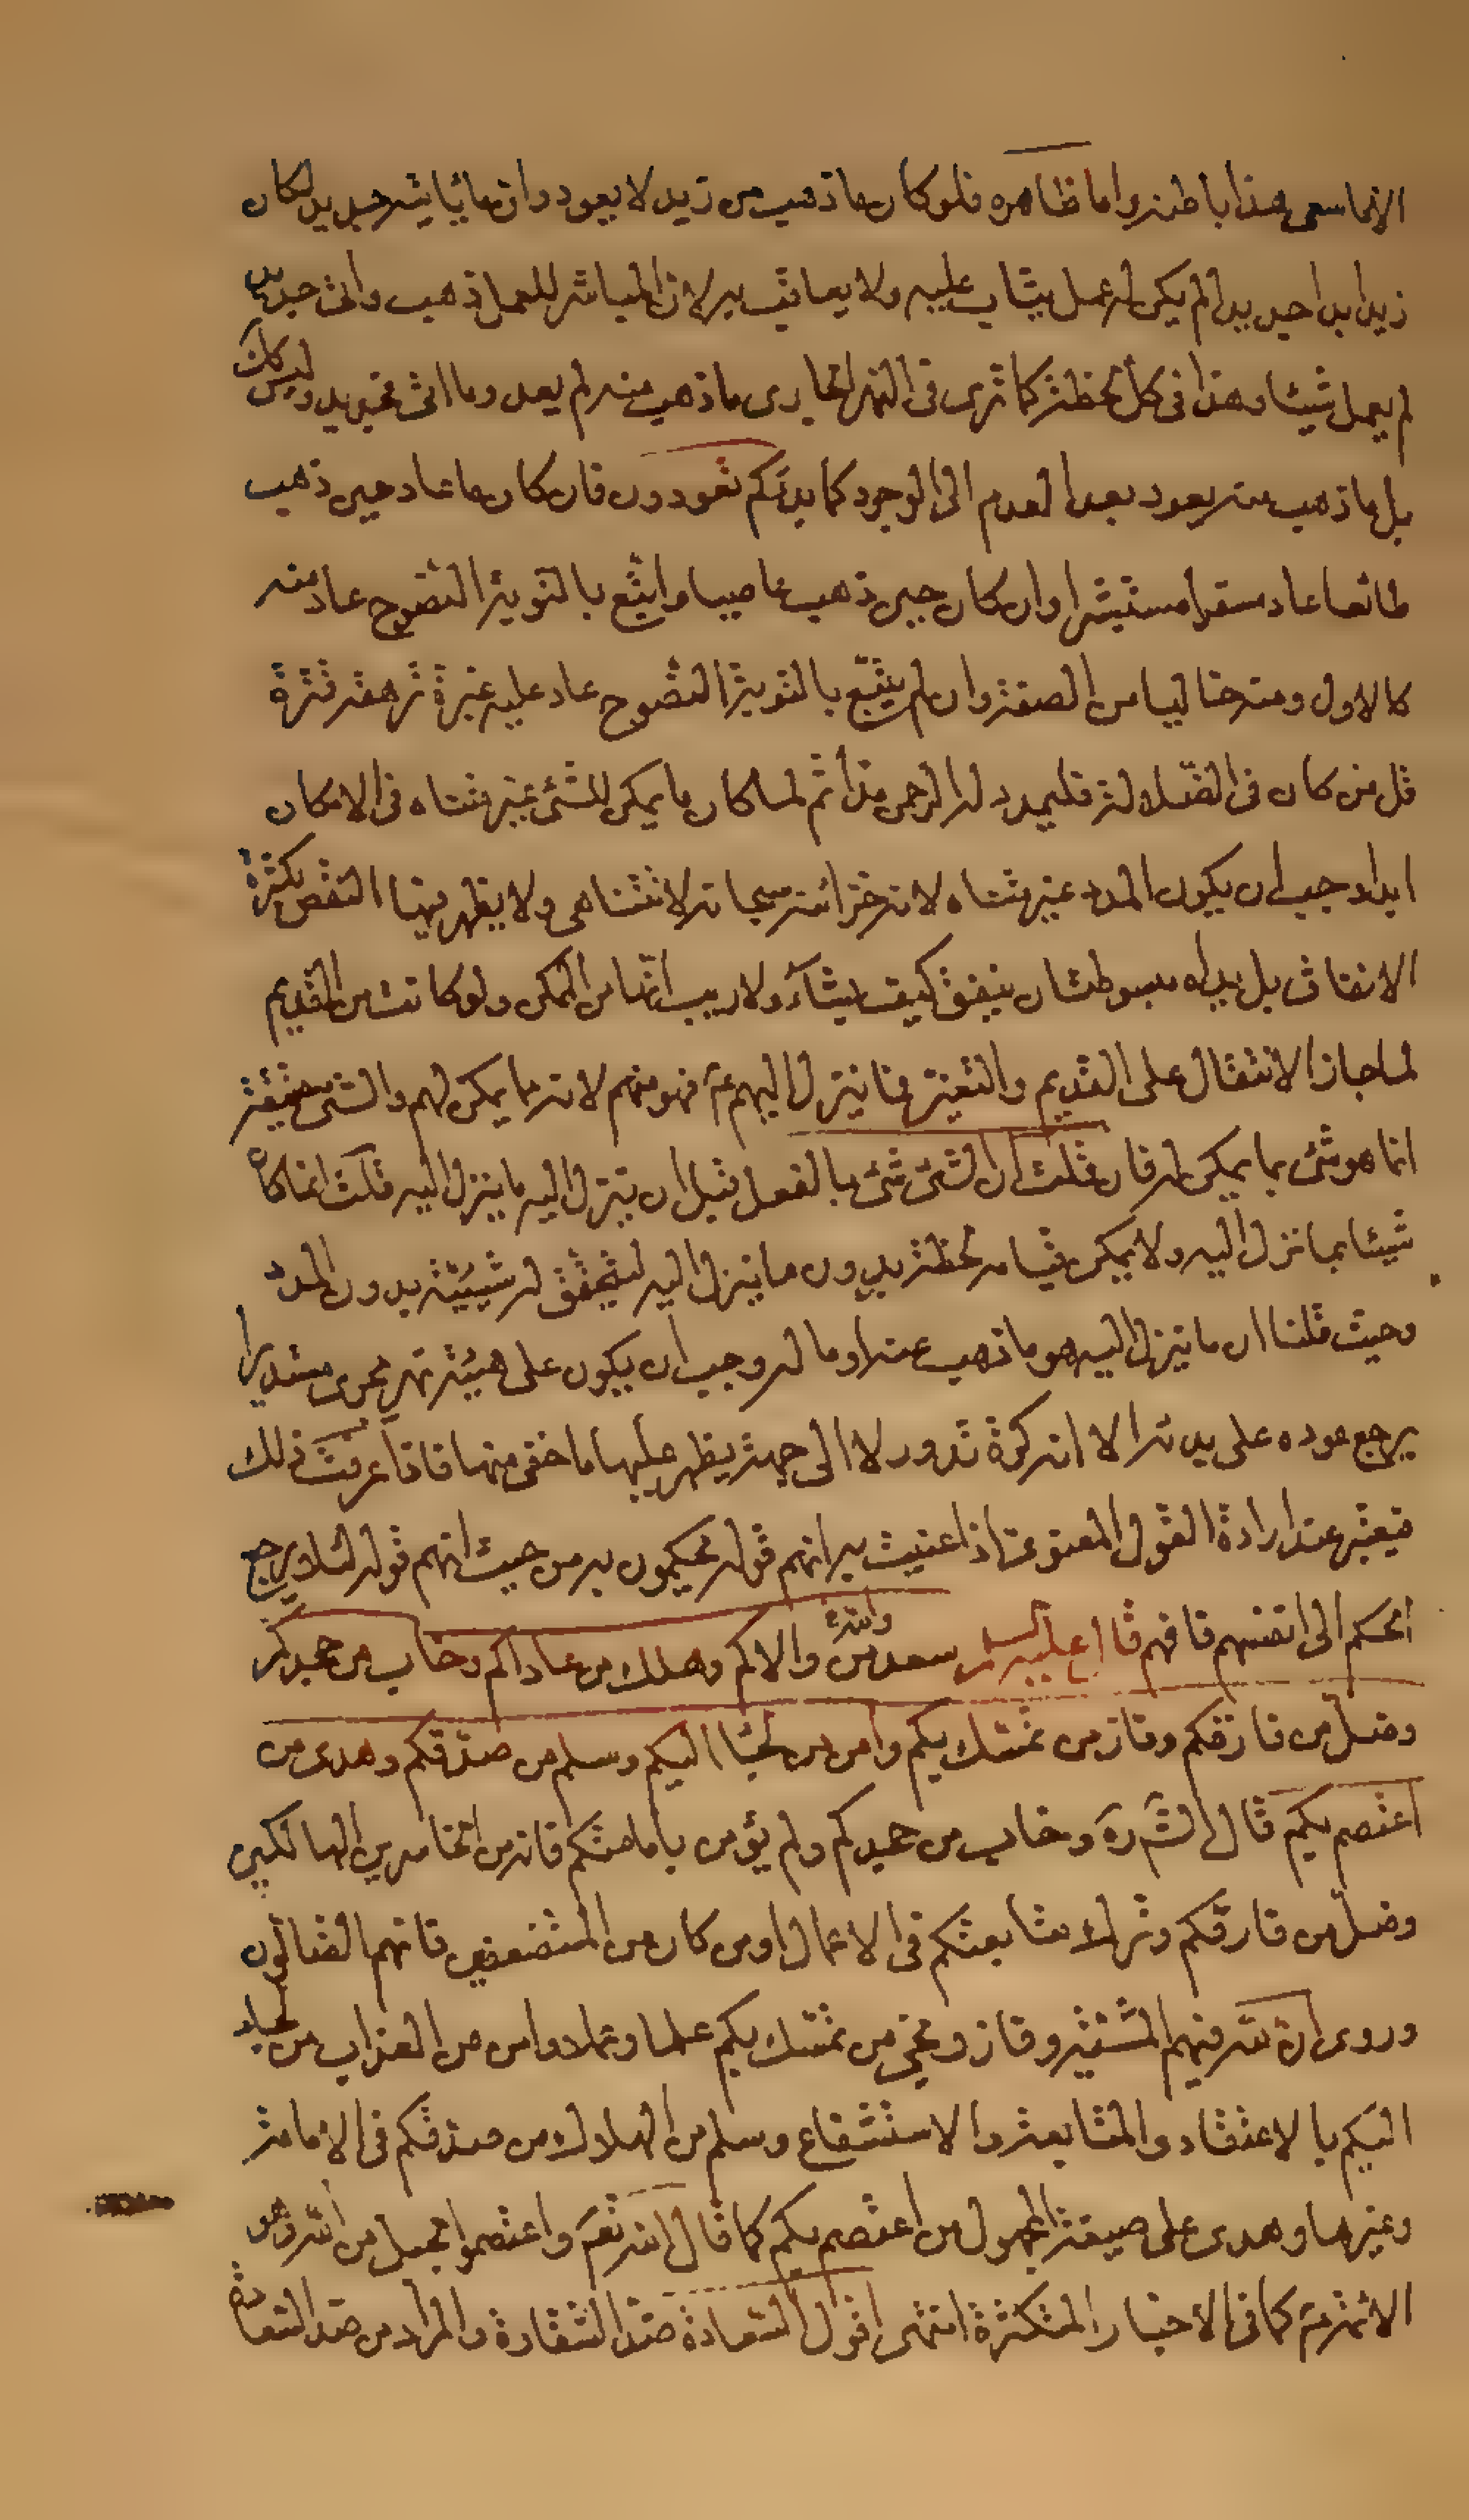 الانحاسمى هذا باطنه واما ظاهره فلو كان ما ذهب من زيد لا يعود وان ما يأتيه جديد لكان
زيد ابدا جديدا لم يكن له عمل يثاب عليه ولا يعاقب به لان المباشر للعمل ذهب والى جديد
لم يعمل شيئا وهذا فى كل لحظة كما ترى فى النهر الجارى ما ذهب منه لم يعد وما اتى فجديد وليس كك
بل ما ذهب منه يعود بعد العدم الى الوجود كما بدئكم تعودون فان كان ما عاد حين ذهب
طائعا عاد مسفرا مستبشرا وان كان حين ذهب عاصيا واتبع بالتوبة النصوح عاد منه
كالاول ومنه خاليا من الصفة وان لم يتبع بالتوبة النصوح عاد عليه غبرة ترهقه قترة
قل من كان فى الضلالة فليمدد له الرحمن مدا ثم لما كان ما يمكن للشئ غير متناه فى الامكان
ابدا وجب ان يكون المدد غير متناه لانه خزائنه سبحانه لا تتناهى ولا يظهر فيها النقص بكثرة
الانفاق بل يداه مبسوطتان ينفق كيف يشآء ولا ريب انها من الممكن ولو كانت من القديم
لما جاز الانتقال على القديم والتغير فما ينزل اليهم ع فهو منهم لانه ما يمكن لهم والشئ حقيقة
انما هو شئ بما يمكن له فان قلت ان الشئ شئ بالفعل قبل ان ينزل اليه ما ينزل اليه قلت انما كان
شيئا بما نزل اليه ولا يمكن قيامه لحظة بدون ما ينزل اليه ليتحقق له شيئية بدون المدد
وحيث قلنا ان ما ينزل اليه هو ما ذهب عنه او ما له وجب ان يكون على هيئة نهر يجرى مستديرا
يرجع عوده على بدئه الا انه كرة تدور لا الى جهة يظهر عليها ما خفى منها فاذا عرفت ذلك
فيعتبر عند ارادة القول المعنو عنه اذا عنيت به انهم قوله يحكمون به من حيث انهم قوله لئلا يرجع
الحكم الى انفسهم فافهم قال عليه السلم سعد والله من والاكم وهلك من عاداكم وخاب من جحدكم
وضل من فارقكم وفاز من تمسك بكم وامن من لجأ اليكم وسلم من صدقكم وهدى من
اعتصم بكم قال الش ره وخاب من جحدكم ولم يؤمن بامامتكم فانه من الخاسرين الهالكين
وضل من فارقكم وترك متابعتكم فى الاعمال او من كان من المستضعفين فانهم الضالون
وروى ان لله فيهم المشية وفاز ونجى من تمسك بكم علما وعملا وامن من العذاب من لجأ
اليكم بالاعتقاد والمتابعة والاستشفاع وسلم من الهلاك من صدقكم فى الامامة
وغيرها وهدى على صيغة المجهول من اعتصم بكم كما قال الله تعم واعتصموا بحبل من الله وهو
الائمة ع كما فى الاخبار المتكثرة انتهى اقول السعادة ضد الشقاوة والمراد من ضد السعادة